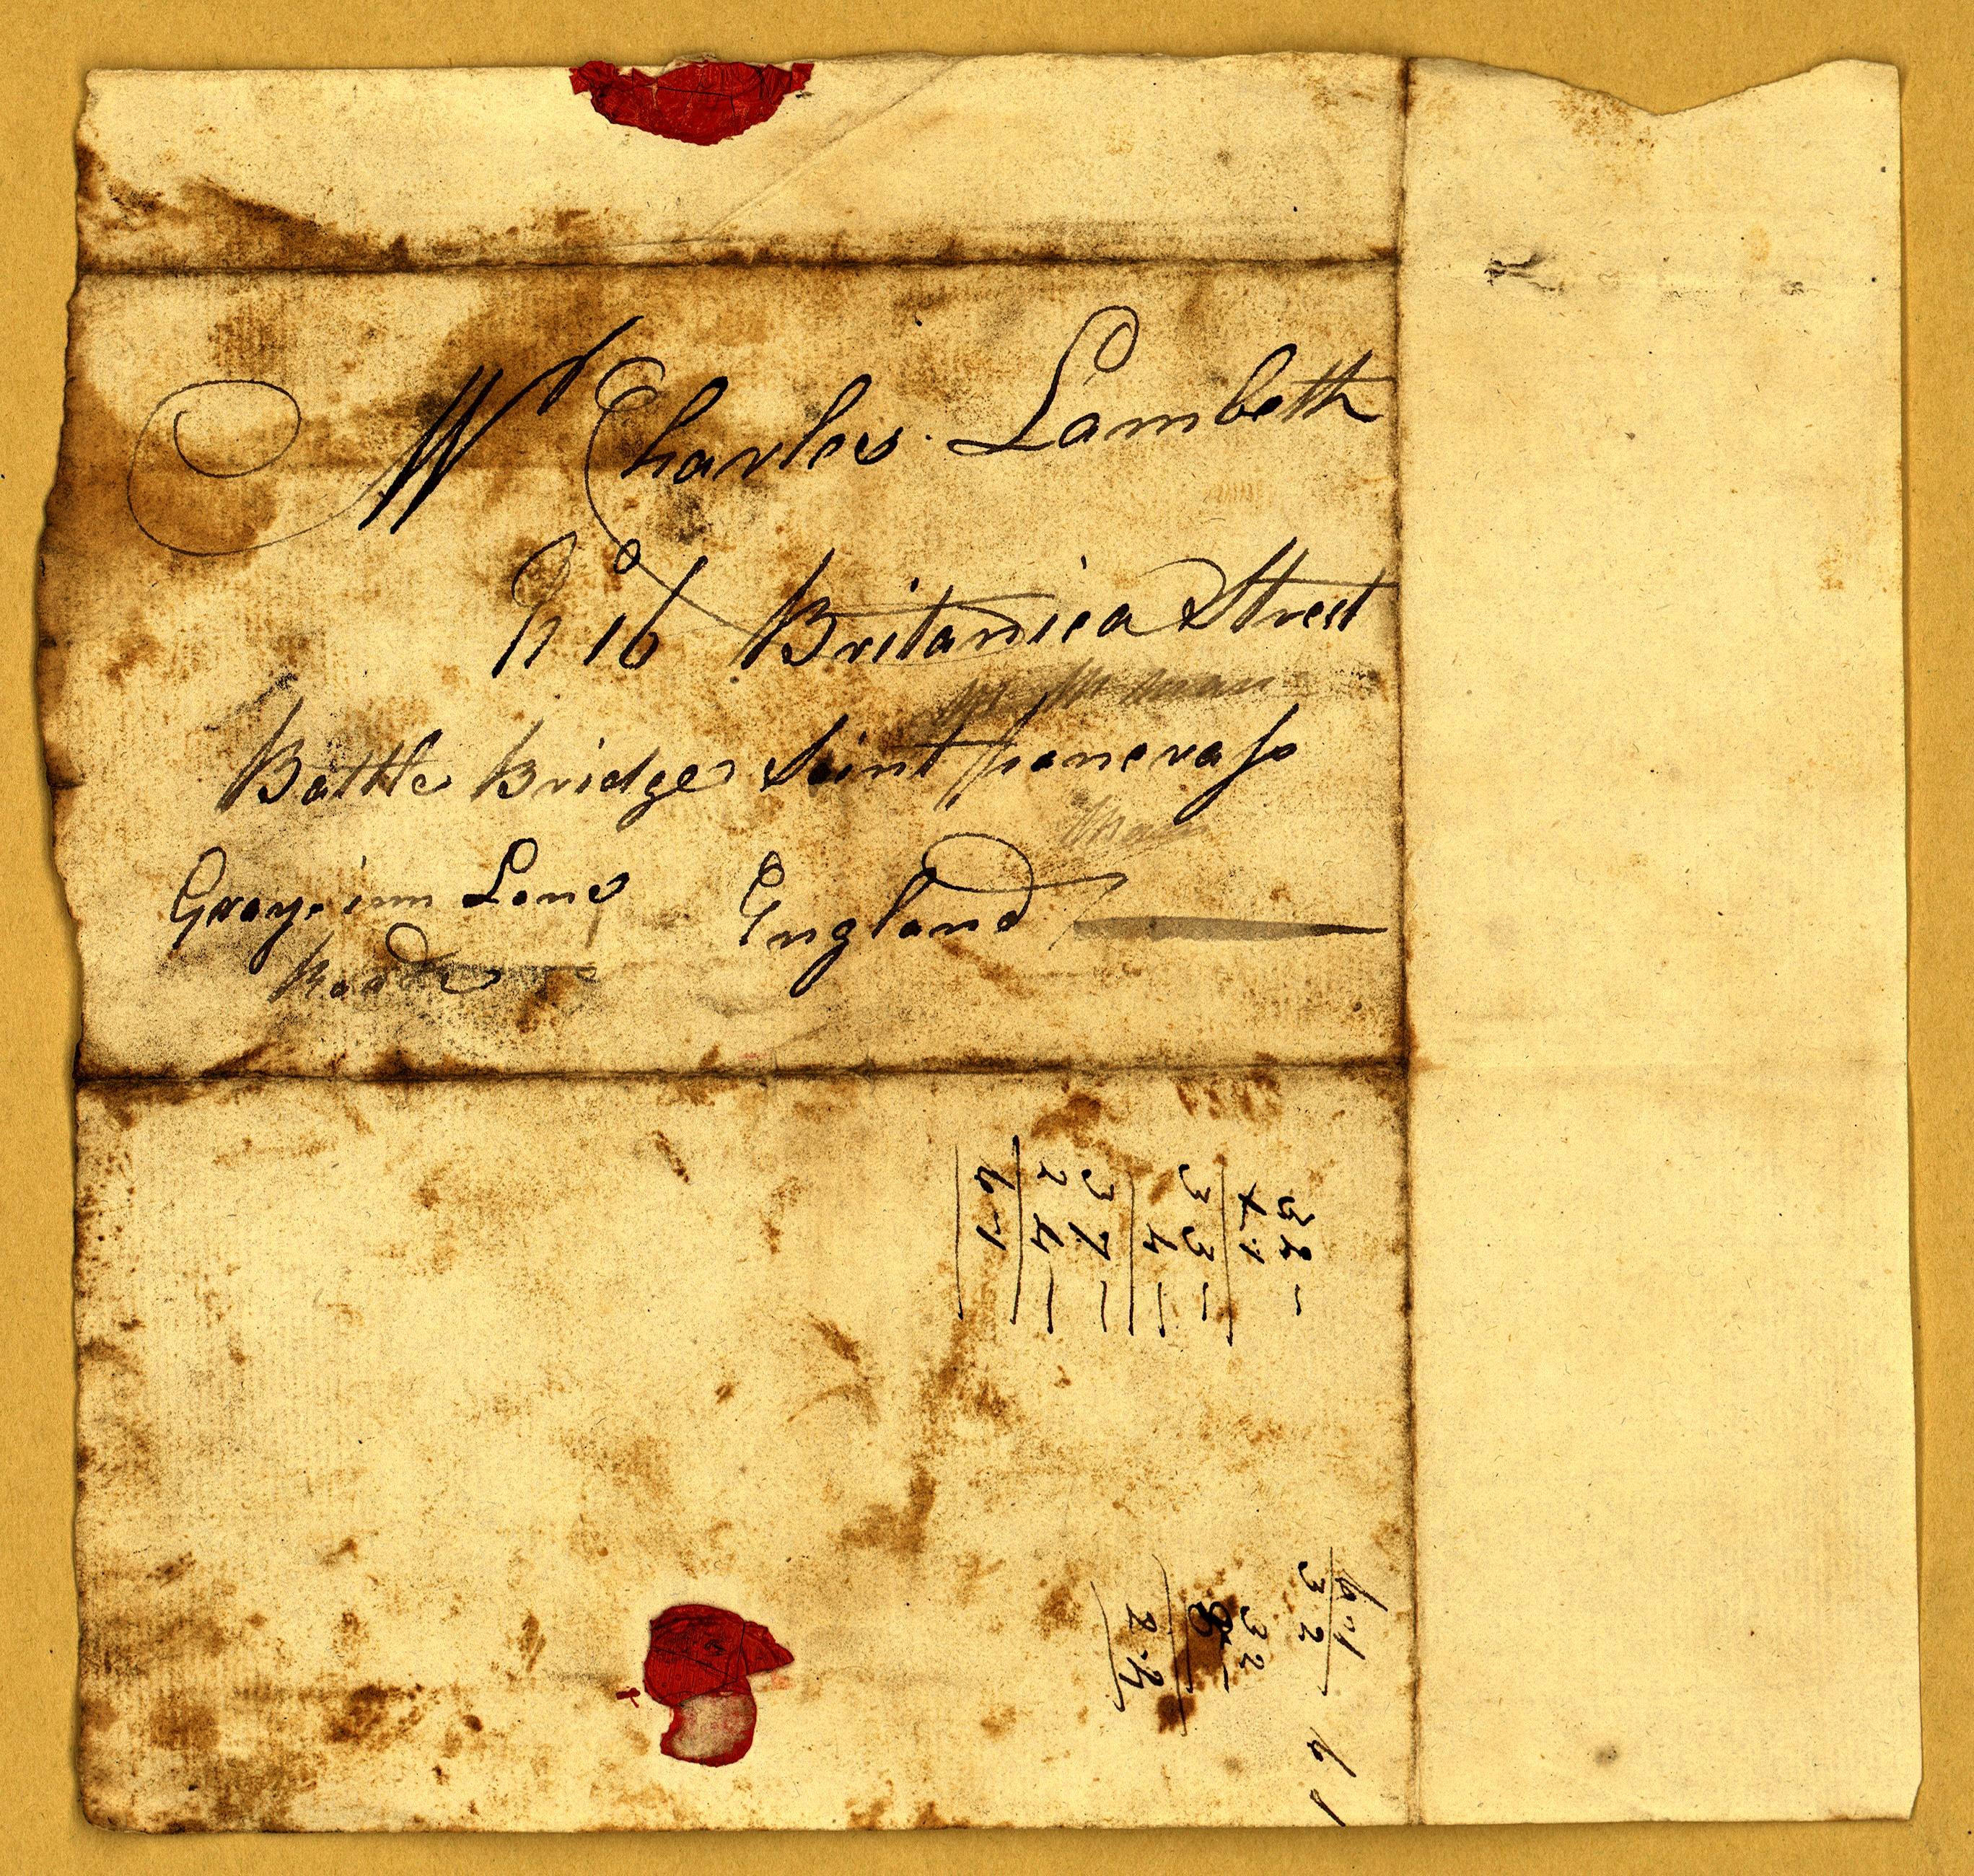 Mr Charles Lambeth
No 16 Britanica Street
Battle Bridge Saint pancrass
Grays inn Lane England
Roade
32
33
4
37
24
61
61
32
32
61